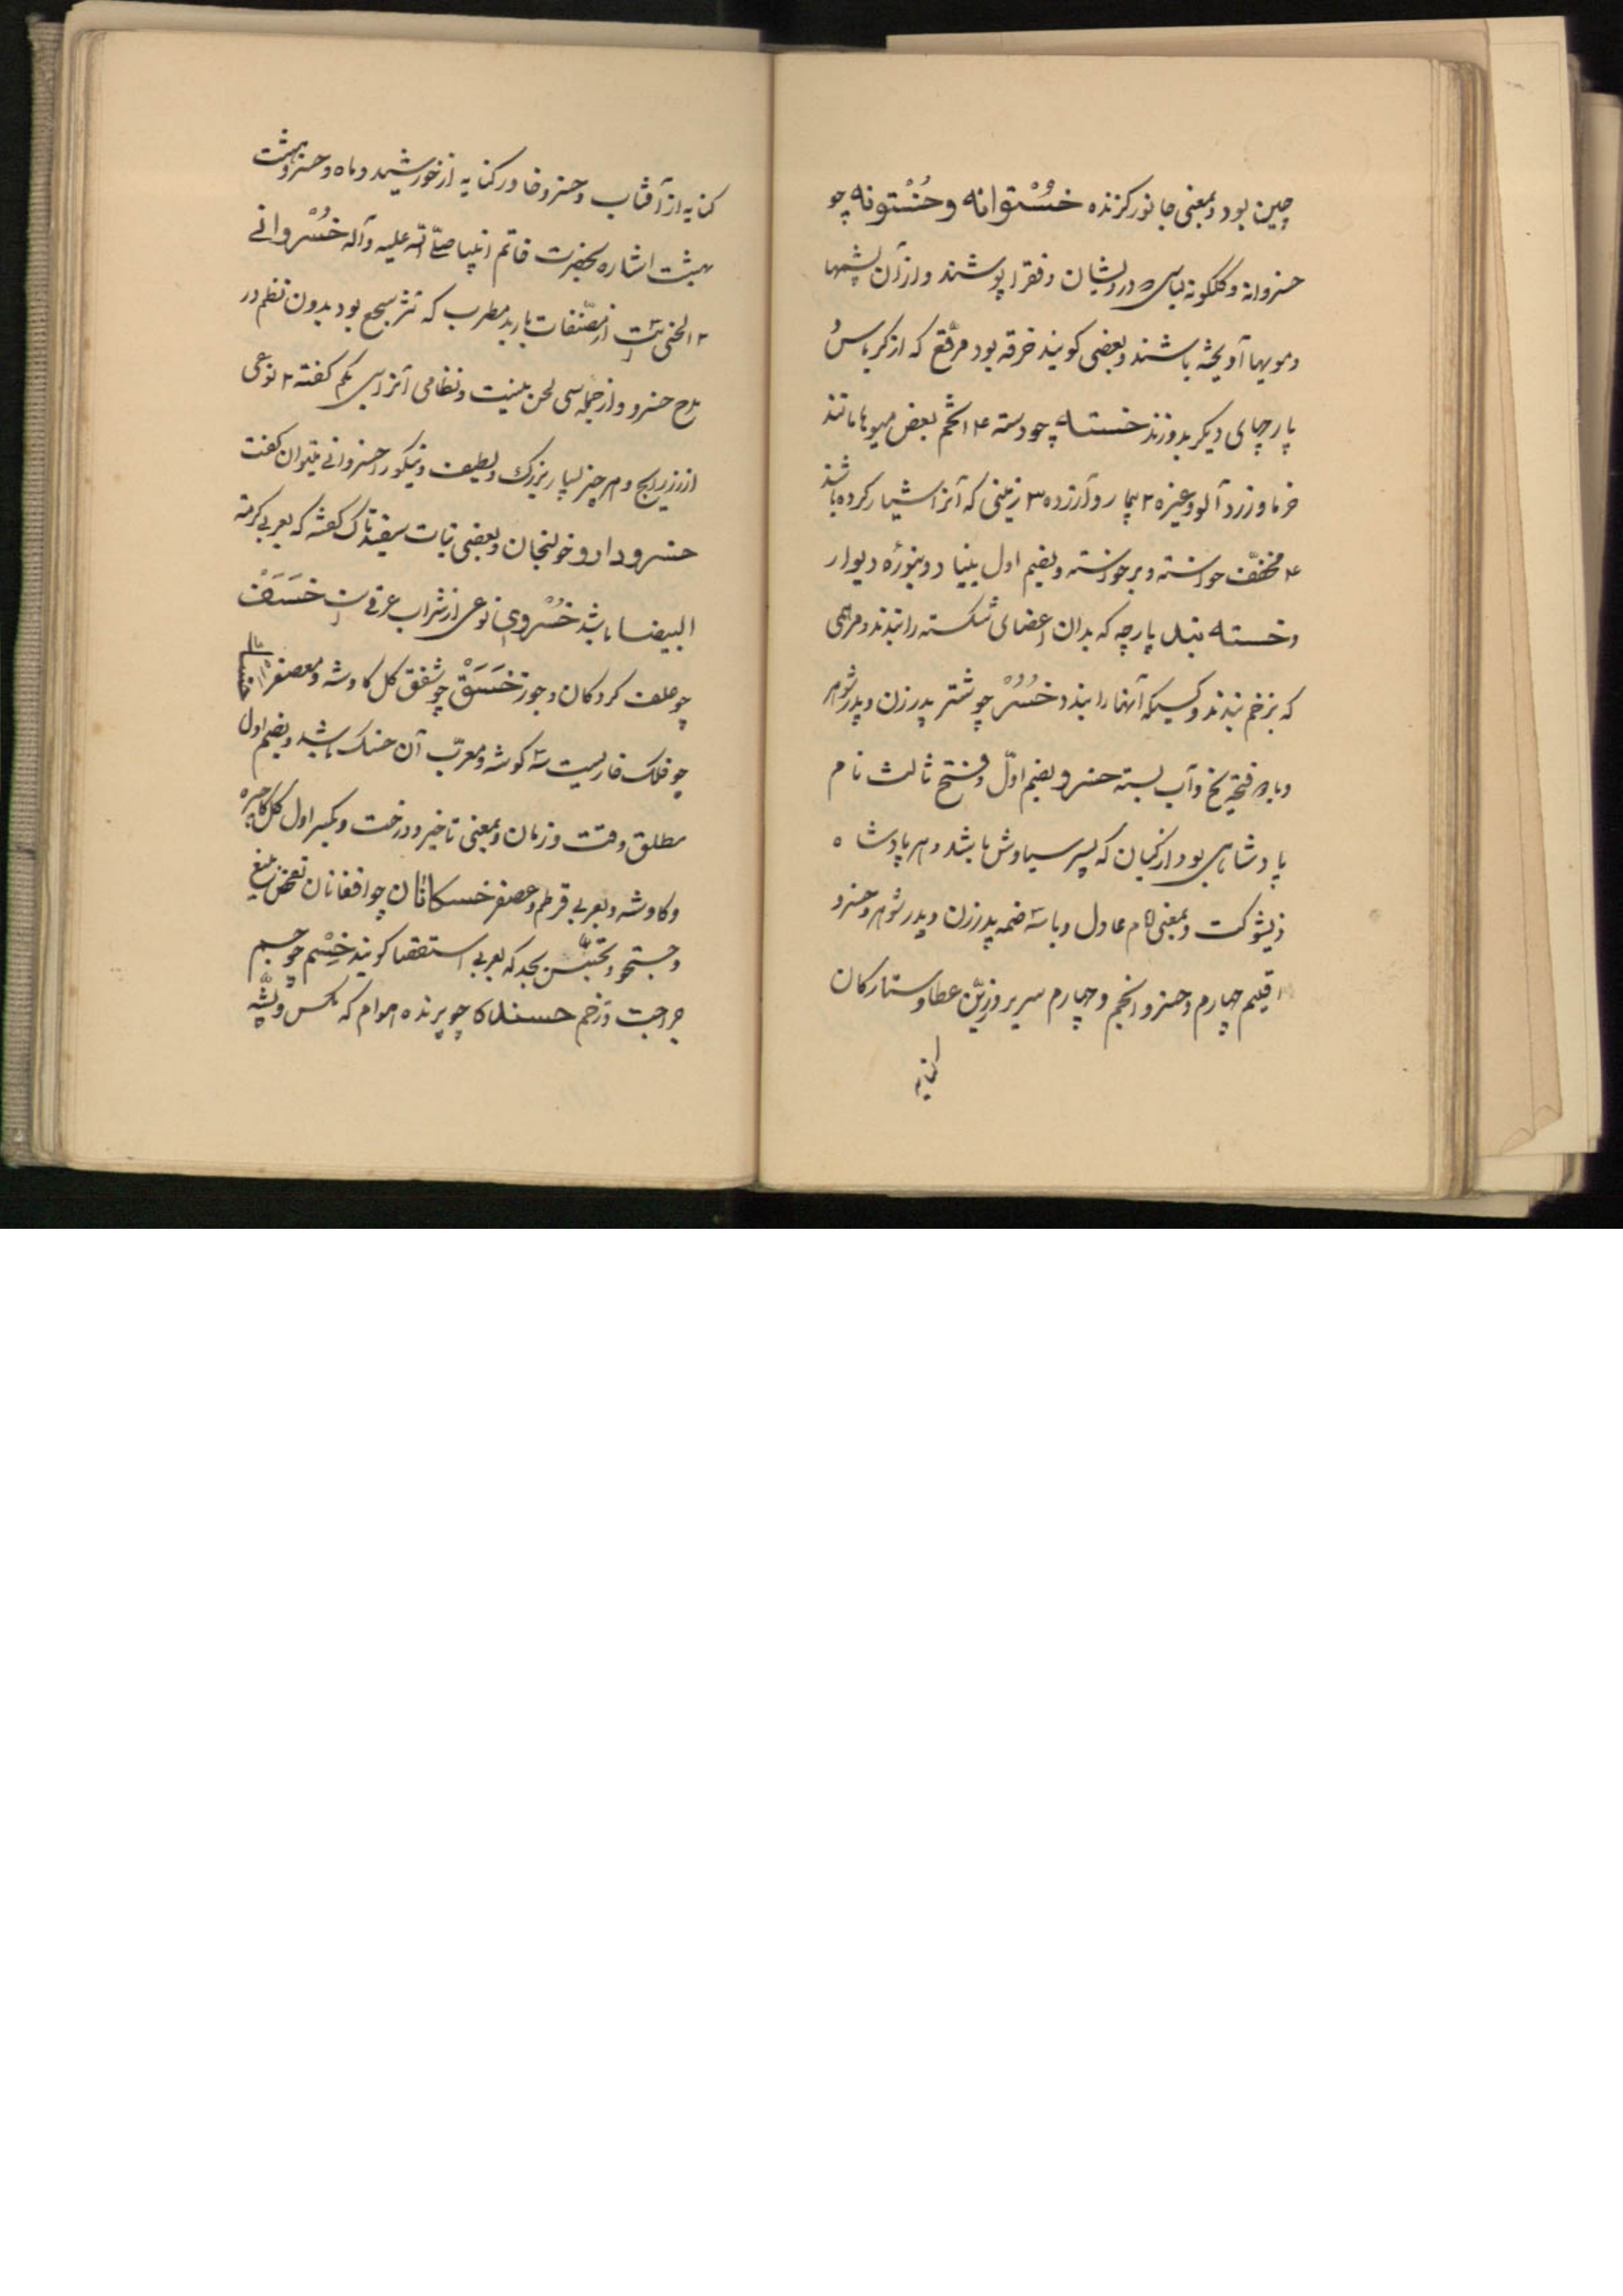 چین بود و بمعنی جانور گزنده خُسْتوانه و خُسْتونه چو
خسروانه و گلگونه لباسی که درویشان و فقرا پوشند و از آن پشمها
و مویها آویخته باشند و بعضی گویند خرقه بود مرقّع که از کرباس
پارچهای دیگر بدوزند خسته چو دسته ۴ اتخم بعض میوها مانند
خرما و زردآلو و غیره ۲ بیمار و آزرده ۳ زمینی که آنرا شیار کرده باشند
۴ مخفّف خواسته و برخواسته و بضم اول بنیاد دیوار
و خسته بند پارچه که بدان اعضای شکسته را بندند و مرهمی
که بزخم بندند و کسیکه آنهارا بندد خُسُرْ چو شتر پدر زن و پدر شوهر
و با دو فتحه یخ و آب بسته خسرو بضم اوّل و فتح ثالث نام
پادشاهی بود از کیان که پسر سیاوش باشد و هر پادشاه
ذیشوکت و بمعنی امام عادل و با سه ضمه پدر زن و پدر شوهر و خسرو
اقلیم چهارم و خسرو انجم و چهارم سریر و زرین عطا و ستارکان
کنایه
کنایه از آفتاب و خسرو خاور کنایه از خورشید و ماه و خسرو هشت
بهشت اشاره بحضرت خاتم انبیا صلّی اللّه علیه و آله خُسْروانی
۱ لحنی است از مصنّفات باربد مطرب که نثر مسجع بود بدون نظم در
مدح خسرو و از جمله سی لحن نیست و نظامی آنرا سی یکم گفته ۲ نوعی
از زر رایج و هر چیز بسیار بزرک و لطیف و نیکو را خسروانی میتوان گفت
خسرودارو خولنجان و بعضی نبات سفید تاک گفته که بعربی کرمة
البیضا باشد خُسْروی نوعی از شراب عرقی است خَسَفْ
چو علف کردکان و جوز خَسَقْ چو شفق گل کاوشه و معصفر
چو فلک خاریست سه گوشه و معرّب آن حسک باشد و بضم اول
مطلق وقت و زمان و بمعنی تاخیر و درخت و بکسر اول گل کاجیره
و کاوشه و بعربی قرطم و عصفر خسکانان چو افغانان تفحص بلیغ
و جستجو و تجسّس بجد که بعربی استقصا گویند خِسْم چو جسم
جراحت و زخم خسندکا چو پرنده هوام که مگس و پشّه